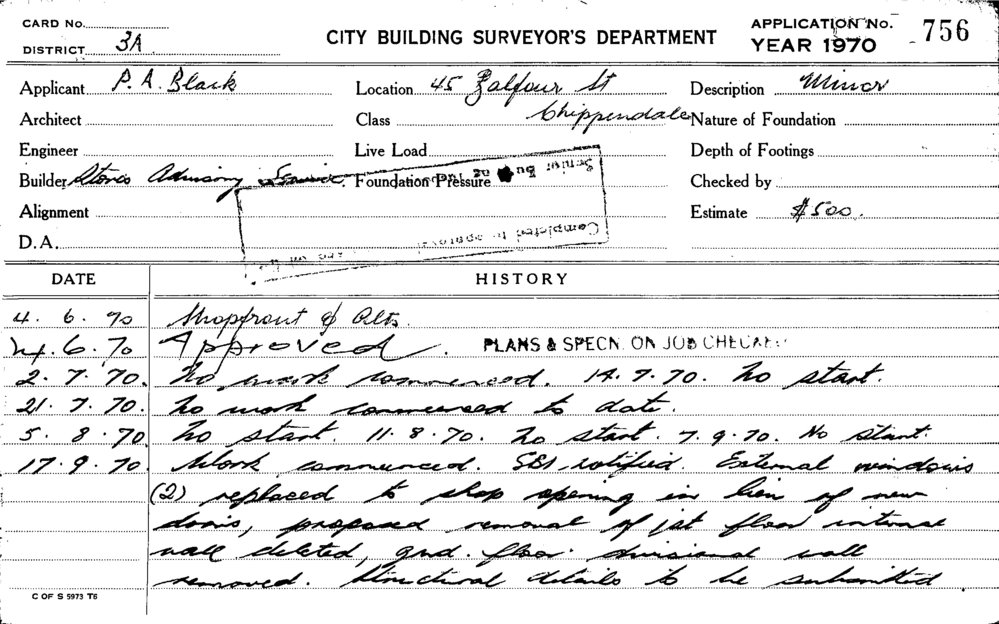 CARD No.
DISTRICT 3A
CITY BUILDING SURVEYOR'S DEPARTMENT
APPLICATION No. 756
YEAR 1970
Applicant P. A. Black
Location 45 Balfour St
Description Minor
Architect
Class Chippendale
Nature of Foundation
Engineer
Live Load
Depth of Footings
Builder Stores Advisory Service.
Foundation Pressure
Checked by
Alignment
Estimate $500.
D.A.
Completed to approval
Senior
DATE
HISTORY
4. 6. 70 Shopfront & Alts.
24. 6. 70 Approved. PLANS & SPECN. ON JOB CHECKED
2. 7. 70. No work commenced. 14. 7. 70. No start.
21. 7. 70. No work commenced to date.
5. 8. 70 No start. 11. 8. 70. No start. 7. 9. 70. No start.
17. 9. 70. Work commenced. SBI notified. External windows
(2) replaced to shop opening in lieu of new
doors, proposed removal of 1st floor internal
wall deleted, gnd. floor divisional wall
removed. Structural details to be submitted.
C OF S 5973 T6